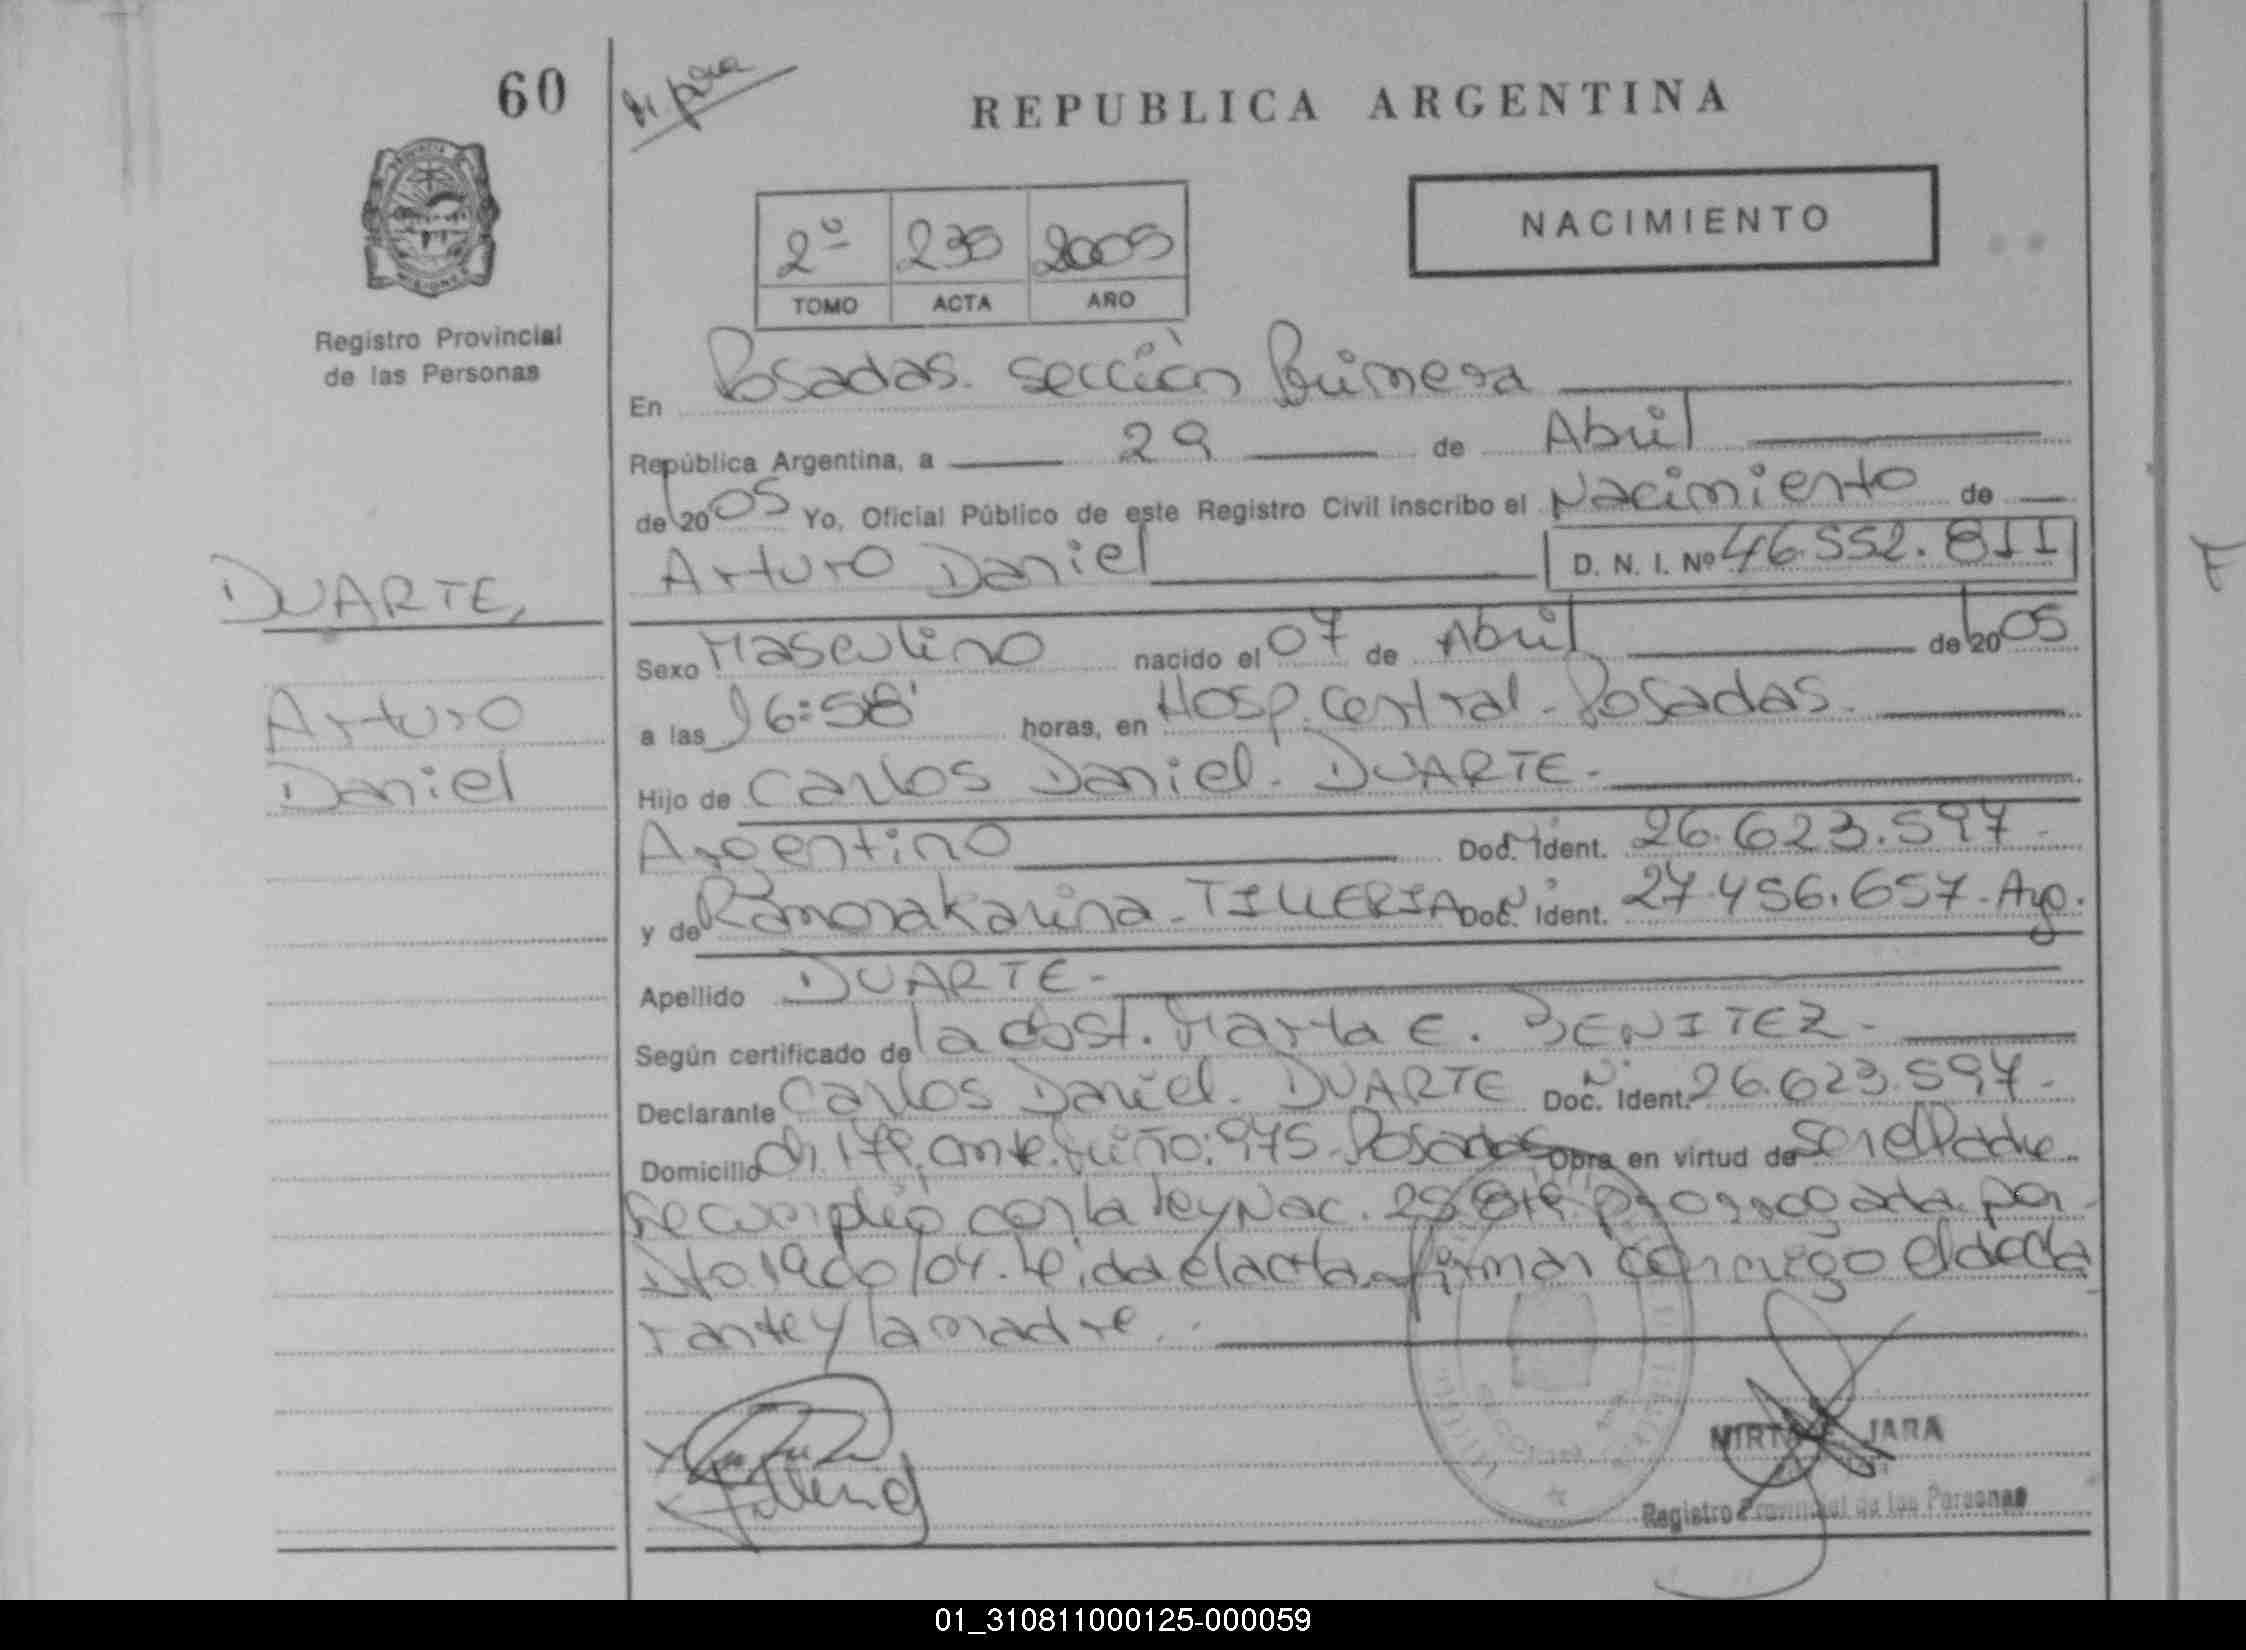 60
REPUBLICA ARGENTINA
NACIMIENTO
2º 235 2005
TOMO ACTA AÑO
Registro Provincial
de las Personas
En Posadas. sección Primera
República Argentina, a 29 de Abril
de 2005 Yo, Oficial Público de este Registro Civil inscribo el Nacimiento de
Arturo Daniel D. N. I. Nº 46.552.811
DUARTE,
Arturo
Daniel
Sexo Masculino nacido el 07 de Abril de 2005
a las 16:58' horas, en Hosp. Central - Posadas.
Hijo de Carlos Daniel. DUARTE.
Argentino Doc. Ident. 26.623.597.
y de Ramona Karina - TILLERIA Doc. Ident. 27.456.657. Arg.
Apellido DUARTE.
Según certificado de la Obst. Marta E. BENITEZ.
Declarante Carlos Daniel. DUARTE Doc. Ident. 26.623.597.
Domicilio 975. Posadas Obra en virtud de ser el Padre.
Se cumplió con la ley Nac. prorrogada por
Dto 1900/04. Leida el acta firman conmigo el decla
rante y la madre.
JARA
Registro Provincial de las Personas
01_310811000125-000059